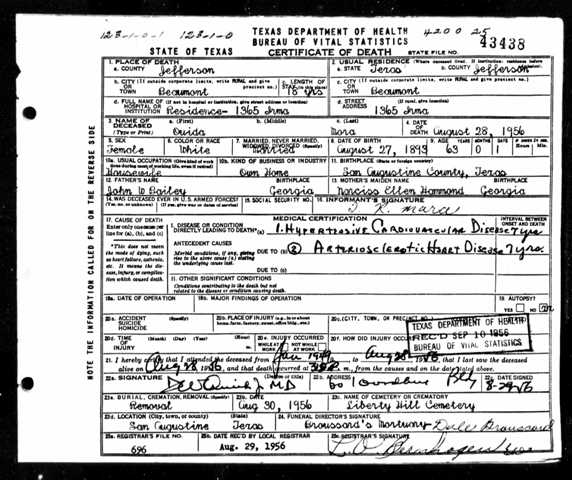 128-1-0-1 128-1-0
TEXAS DEPARTMENT OF HEALTH
BUREAU OF VITAL STATISTICS
4200 25
STATE OF TEXAS
CERTIFICATE OF DEATH
STATE FILE NO.
43438
1. PLACE OF DEATH
a. COUNTY Jefferson
2. USUAL RESIDENCE (Where deceased lived. If institution: residence before admission)
a. STATE Texas b. COUNTY Jefferson
b. CITY (If outside corporate limits, write RURAL and give precinct no.)
OR TOWN Beaumont
c. LENGTH OF STAY (in this place)
18 yrs
c. CITY (If outside corporate limits, write RURAL and give precinct no.)
OR TOWN Beaumont
d. FULL NAME OF (If not in hospital or institution, give street address or location)
HOSPITAL OR INSTITUTION Residence- 1365 Irma
d. STREET ADDRESS (If rural, give location)
1365 Irma
3. NAME OF DECEASED (Type or Print)
a. (First) Ouida
b. (Middle)
c. (Last)
4. DATE OF DEATH August 28, 1956
5. SEX Female
6. COLOR OR RACE White
7. MARRIED, NEVER MARRIED, WIDOWED, DIVORCED (Specify) Married
8. DATE OF BIRTH August 27, 1893
9. AGE 63 0 1
10a. USUAL OCCUPATION Housewife
10b. KIND OF BUSINESS OR INDUSTRY Own Home
11. BIRTHPLACE (State or foreign country) San Augustine County, Texas
12. FATHER'S NAME BIRTHPLACE
John W Gailey Georgia
13. MOTHER'S MAIDEN NAME BIRTHPLACE
Narciss Ellen Hammond Georgia
14. WAS DECEASED EVER IN U.S. ARMED FORCES?
15. SOCIAL SECURITY NO.
16. INFORMANT'S SIGNATURE
MEDICAL CERTIFICATION
INTERVAL BETWEEN ONSET AND DEATH
17. CAUSE OF DEATH
Enter only one cause per line for (a), (b), and (c)
I. DISEASE OR CONDITION DIRECTLY LEADING TO DEATH* (a) 1. Hypertensive Cardiovascular Disease 7 yrs
*This does not mean the mode of dying, such as heart failure, asthenia, etc. It means the disease, injury, or complication which caused death.
ANTECEDENT CAUSES
Morbid conditions, if any, giving rise to the above cause (a) stating the underlying cause last.
DUE TO (b) 2 Arteriosclerotic Heart Disease 7 yrs.
DUE TO (c)
II. OTHER SIGNIFICANT CONDITIONS
Conditions contributing to the death but not related to the disease or condition causing death.
18a. DATE OF OPERATION
18b. MAJOR FINDINGS OF OPERATION
19. AUTOPSY?
YES NO
20a. ACCIDENT SUICIDE HOMICIDE (Specify)
20b. PLACE OF INJURY
20c. (CITY, TOWN, OR PRECINCT NO.)
20d. TIME OF INJURY (Month) (Day) (Year) (Hour)
20e. INJURY OCCURRED
WHILE AT WORK NOT WHILE AT WORK
20f. HOW DID INJURY OCCUR?
TEXAS DEPARTMENT OF HEALTH
REC'D SEP 10 1956
BUREAU OF VITAL STATISTICS
21. I hereby certify that I attended the deceased from Jan 1949, to Aug 28, 1956, that I last saw the deceased
alive on Aug 28, 1956, and that death occurred at m., from the causes and on the date stated above.
22a. SIGNATURE M D
22b. ADDRESS
22c. DATE SIGNED
8-29-56
23a. BURIAL, CREMATION, REMOVAL (Specify) Removal
23b. DATE Aug 30, 1956
23c. NAME OF CEMETERY OR CREMATORY
Liberty Hill Cemetery
23d. LOCATION (City, town, or county) (State)
San Augustine Texas
24. FUNERAL DIRECTOR'S SIGNATURE
Broussard's Mortuary Broussard
25a. REGISTRAR'S FILE NO.
696
25b. DATE REC'D BY LOCAL REGISTRAR
Aug. 29, 1956
25c. REGISTRAR'S SIGNATURE
NOTE THE INFORMATION CALLED FOR ON THE REVERSE SIDE